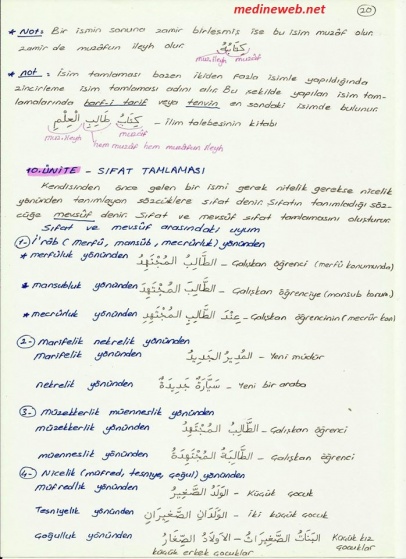 medineweb.net
20
* Not: Bir ismin sonuna zamir birleşmiş ise bu isim muzâf olur.
zamir de muzâfun ileyh olur. كِتَابُهُ
muz.ileyh muzâf
* not: İsim tamlaması bazen ikiden fazla isimle yapıldığında
zincirleme isim tamlaması adını alır. Bu şekilde yapılan isim tam-
lamalarında harf-i tarif veya tenvin en sondaki isimde bulunur.
كِتَابُ طَالِبِ الْعِلْمِ - ilim talebesinin kitabı
muz.ileyh muzâf
hem muzâf hem muzâfun ileyh
10. ÜNİTE - SIFAT TAMLAMASI
Kendisinden önce gelen bir ismi gerek nitelik gerekse nicelik
yönünden tanımlayan sözcüklere sıfat denir. Sıfatın tanımladığı söz-
cüğe mevsûf denir. Sıfat ve mevsûf sıfat tamlamasını oluşturur.
Sıfat ve mevsûf arasındaki uyum
1- İ'râb (merfû, mansûb, mecrûrluk) yönünden
* merfûluk yönünden الطَّالِبُ الْمُجْتَهِدُ - Çalışkan öğrenci (merfû konumunda)
* mansubluk yönünden الطَّالِبَ الْمُجْتَهِدَ - Çalışkan öğrenciye (mansub konum.)
* mecrûrluk yönünden عِنْدَ الطَّالِبِ الْمُجْتَهِدِ - Çalışkan öğrencinin (mecrûr kon)
2- Marifelik nekrelik yönünden
marifelik yönünden الْمُدِيرُ الْجَدِيدُ - Yeni müdür
nekrelik yönünden سَيَّارَةٌ جَدِيدَةٌ - Yeni bir araba
3- Müzekkerlik müenneslik yönünden
müzekkerlik yönünden الطَّالِبُ الْمُجْتَهِدُ - Çalışkan öğrenci
müenneslik yönünden الطَّالِبَةُ الْمُجْتَهِدَةُ - Çalışkan öğrenci
4- Nicelik (müfred, tesniye, çoğul) yönünden
müfredlik yönünden الْوَلَدُ الصَّغِيرُ - Küçük çocuk
Tesniyelik yönünden الْوَلَدَانِ الصَّغِيرَانِ - İki küçük çocuk
Çoğulluk yönünden الْبَنَاتُ الصَّغِيرَاتُ - الْأَوْلَادُ الصِّغَارُ Küçük kız
çocuklar
küçük erkek çocuklar